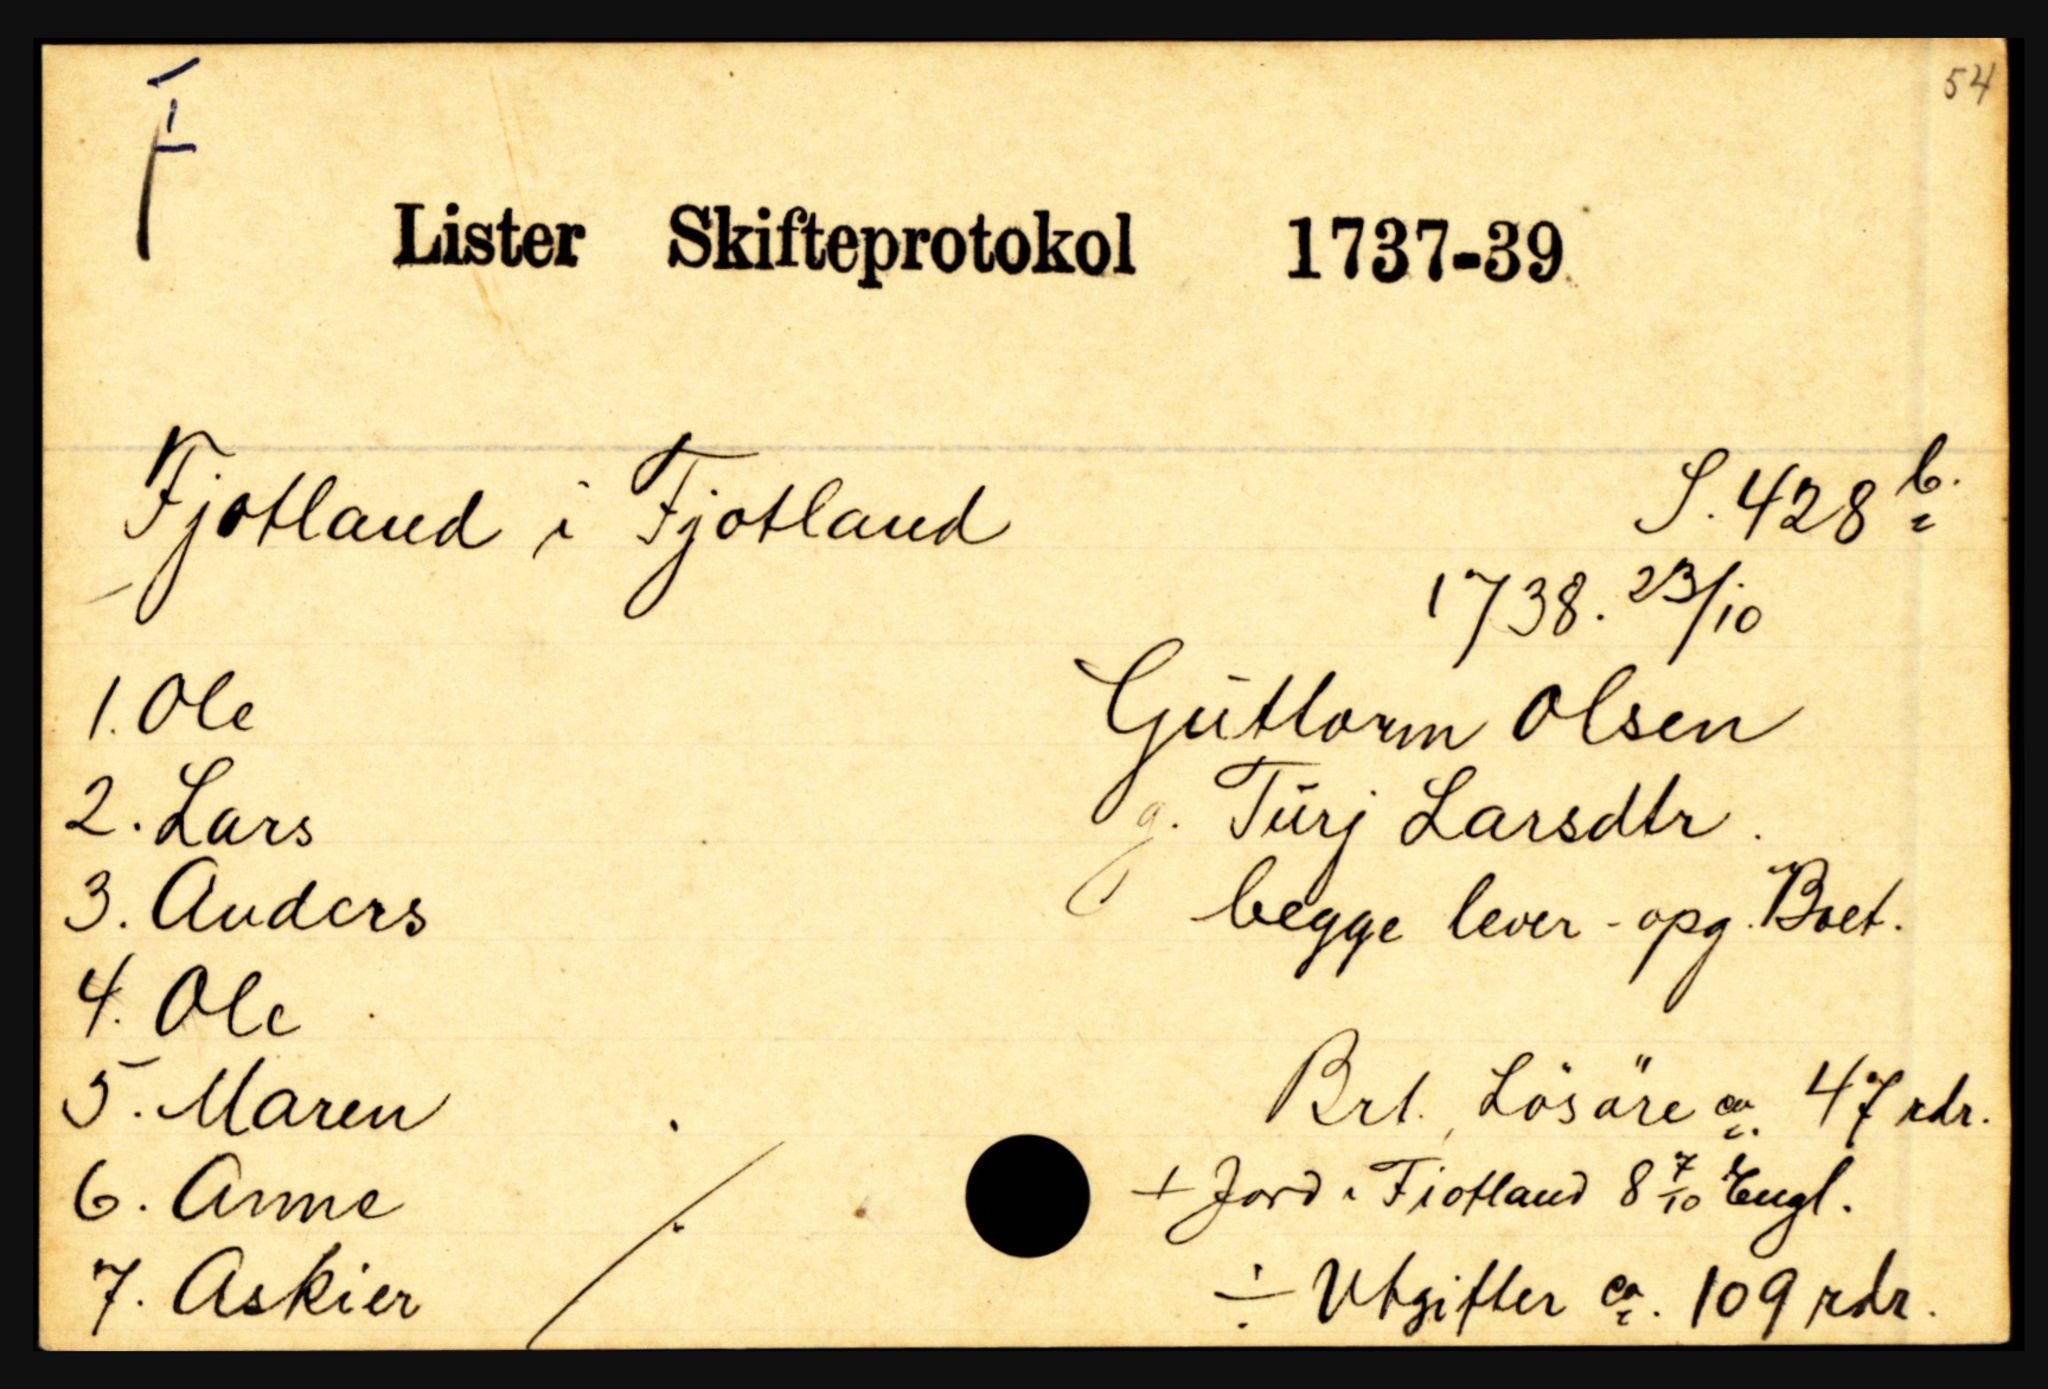 F
54
Lister Skifteprotokol 1737-39
Fjotland i Fjotland
S. 428 b.
1738. 23/10
1. Ole
Guttorm Olsen
2. Lars
g. Turj Larsdtr.
3. Anders
begge lever - opg. Boet.
4. Ole
5. Maren
Brt. Lösöre ca. 47 rdr.
6. Anne
+ Jord i Fiotland 8 7/10 Engl.
7. Askier
÷ Utgifter ca. 109 rdr.